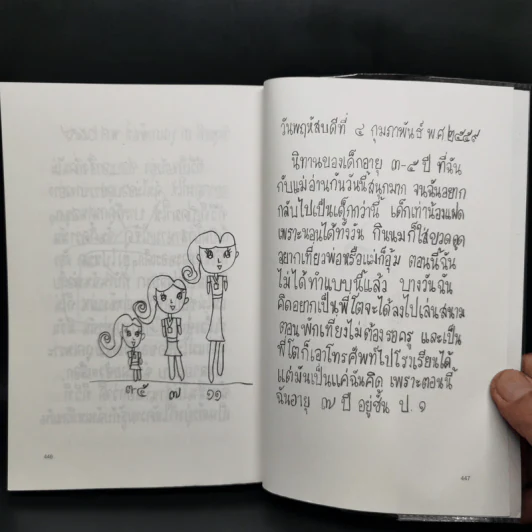 ๓-๕ ๗ ๑๑
446
วันพฤหัสบดีที่ ๔ กุมภาพันธ์ พศ ๒๕๕๙
นิทานของเด็กอายุ ๓-๕ ปี ที่ฉัน
กับแม่อ่านกันวันนี้สนุกมาก จนฉันอยาก
กลับไปเป็นเด็กกว่านี้ เด็กเท่าน้องแฝด
เพราะนอนได้ทั้งวัน กินนมก็ใส่ขวดดูด
อยากเที่ยวพ่อหรือแม่ก็อุ้ม ตอนนี้ฉัน
ไม่ได้ทำแบบนี้แล้ว บางวันฉัน
คิดอยากเป็นพี่โตจะได้ลงไปเล่นสนาม
ตอนพักเที่ยงไม่ต้องรอครู และเป็น
พี่โตก็เอาโทรศัพท์ไปโรงเรียนได้
แต่มันเป็นแค่ฉันคิด เพราะตอนนี้
ฉันอายุ ๗ ปี อยู่ชั้น ป. ๑
447